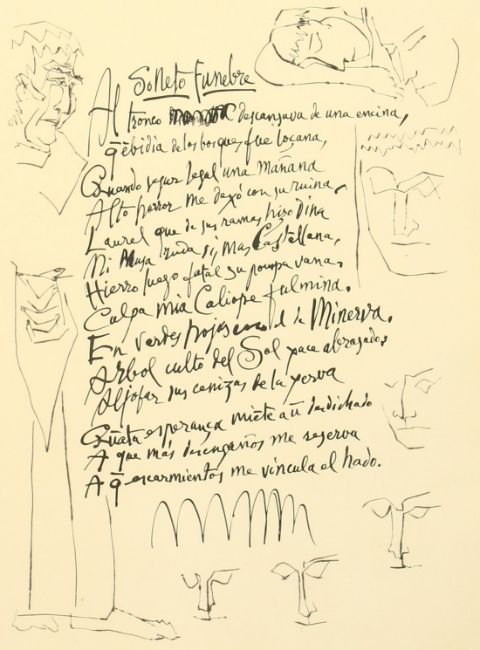 Soneto funebre
Al tronco descansava de una encina,
q̄ ēbidia de los bosques fue loçana,
Quando segur legal una mañana
Alto horror me dexó con su ruina.
Laurel que de sus ramas hizo dina
Mi Musa ruda sí, mas Castellana,
Hierro luego fatal su pompa vana,
Culpa mia Caliope fulmina.
En verdes hojas el de Minerva.
Arbol culto del Sol yace abrasado,
Aljofar sus cenizas de la yerva
Quāta esperança miēte a ū desdichado
A que más desengaños me reserva
A q̄ escarmientos me vincula el hado.